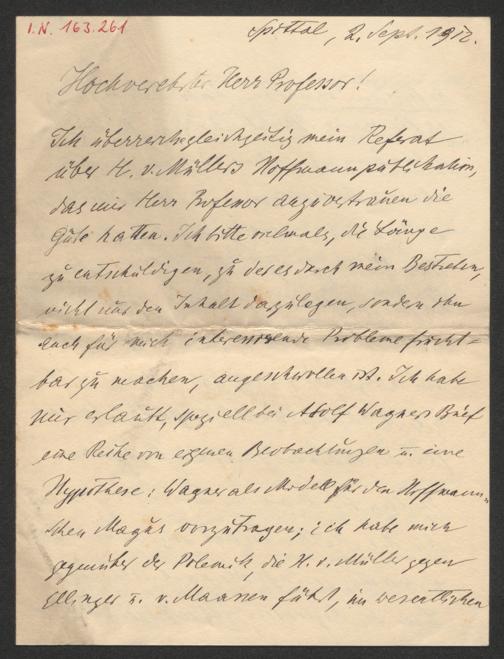 I.N. 163.261
Spittal, 2. Sept. 1912.
Hochverehrter Herr Professor!
Ich überreiche gleichzeitig mein Referat
über H. v. Müllers Hoffmannpublikation,
das mir Herr Professor anzuvertrauen die
Güte hatten. Ich bitte vielmals, die Länge
zu entschuldigen, zu der es durch mein Bestreben,
nicht nur den Inhalt darzulegen, sondern ihn
auch für mich interessierende Probleme frucht-
bar zu machen, angeschwollen ist. Ich habe
mir erlaubt, speziell bei Adolf Wagners Brief
eine Reihe von eigenen Beobachtungen u. eine
Hypothese: Wagner als Modell für den Hoffmann-
schen Magus vorzutragen; ich habe mich
gegenüber der Polemik, die H. v. Müller gegen
Ellinger u. v. Maassen führt, im wesentlichen